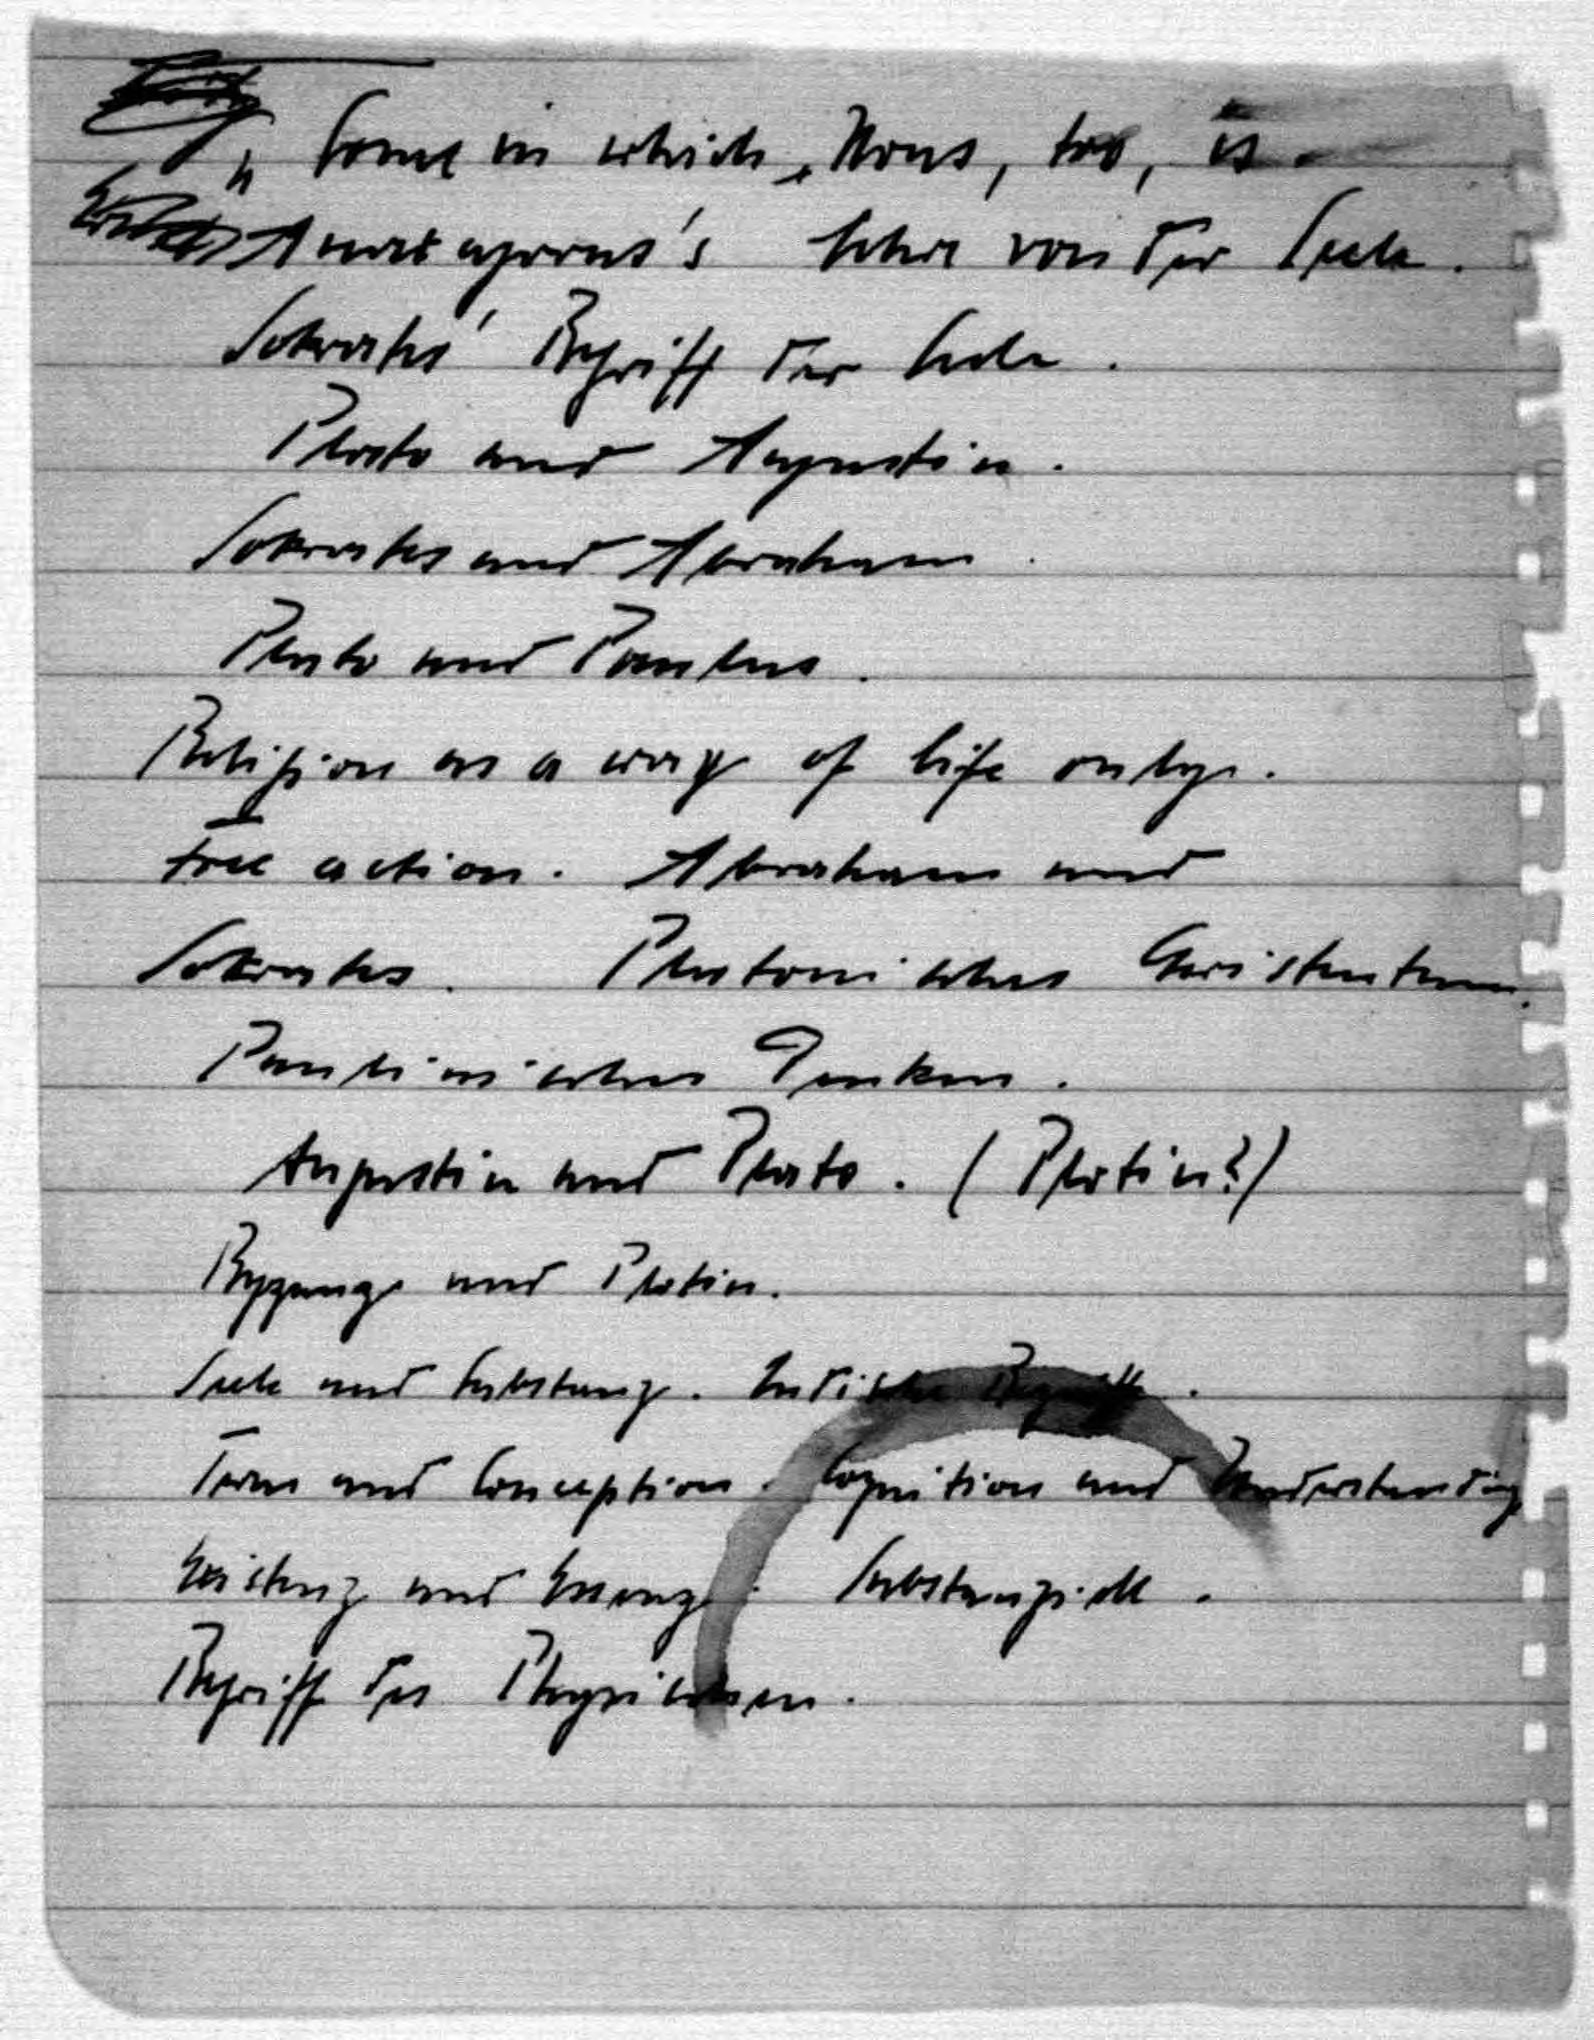 „Some in which, Nous, too, is.
Anaxagoras's Lehre von der Seele.
Sokrates' Begriff der Seele.
Plato und Augustin.
Sokrates und Abraham.
Plato und Paulus.
Religion as a way of life only.
Free action. Abraham und
Sokrates. Platonisches Christentum.
Paulinisches Denken.
Augustin und Plato. (Plotin?)
Byzanz und Plotin.
Seele und Substanz. Indische Begriffe.
Term und Conception. Cognition und Understanding
Existenz und Essenz. Substanziell.
Begriff des Physischen.